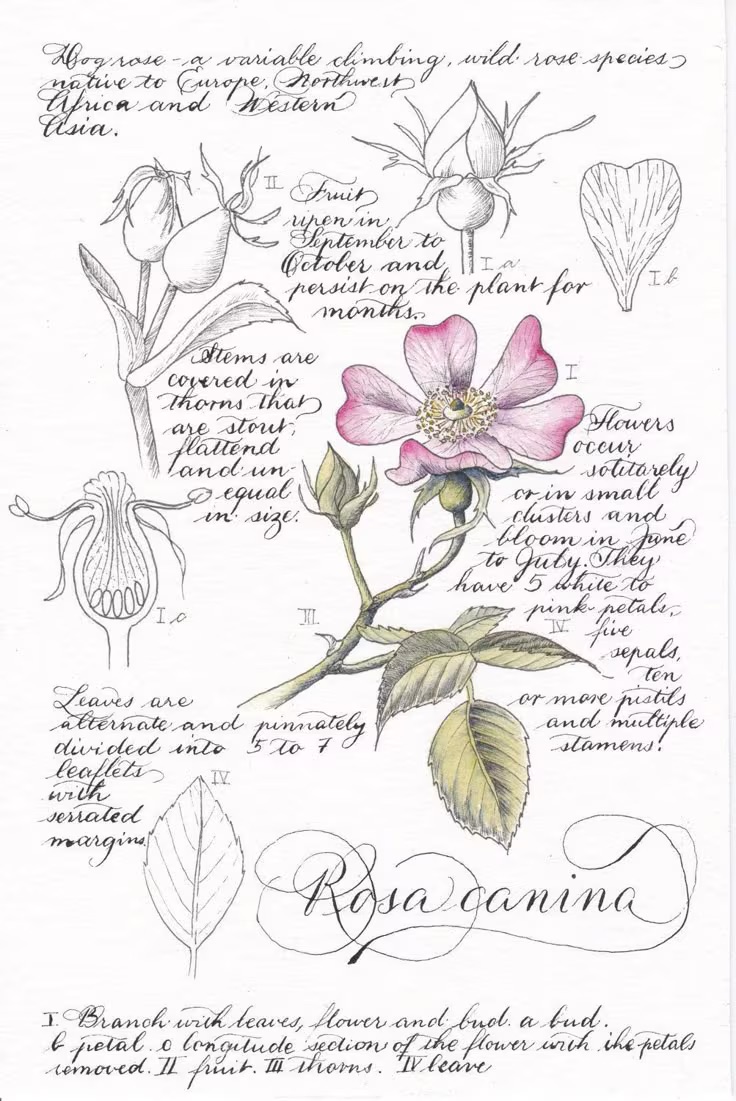 Dog rose - a variable climbing, wild rose species
native to Europe, Northwest
Africa and Western
Asia.
II
Fruit
ripen in
September to
October and
persist on the plant for
months.
I a
I b
Stems are
covered in
thorns that
are stout,
flattend
and un-
equal
in size.
I
Flowers
occur
solitarely
or in small
clusters and
bloom in June
to July. They
have 5 white to
pink petals,
five
sepals,
ten
or more pistils
and multiple
stamens.
I c
III
IV
Leaves are
alternate and pinnately
divided into 5 to 7
leaflets
with
serrated
margins.
IV
Rosa canina
I. Branch with leaves, flower and bud. a bud.
b petal. c longitude section of the flower with the petals
removed. II fruit. III thorns. IV leave